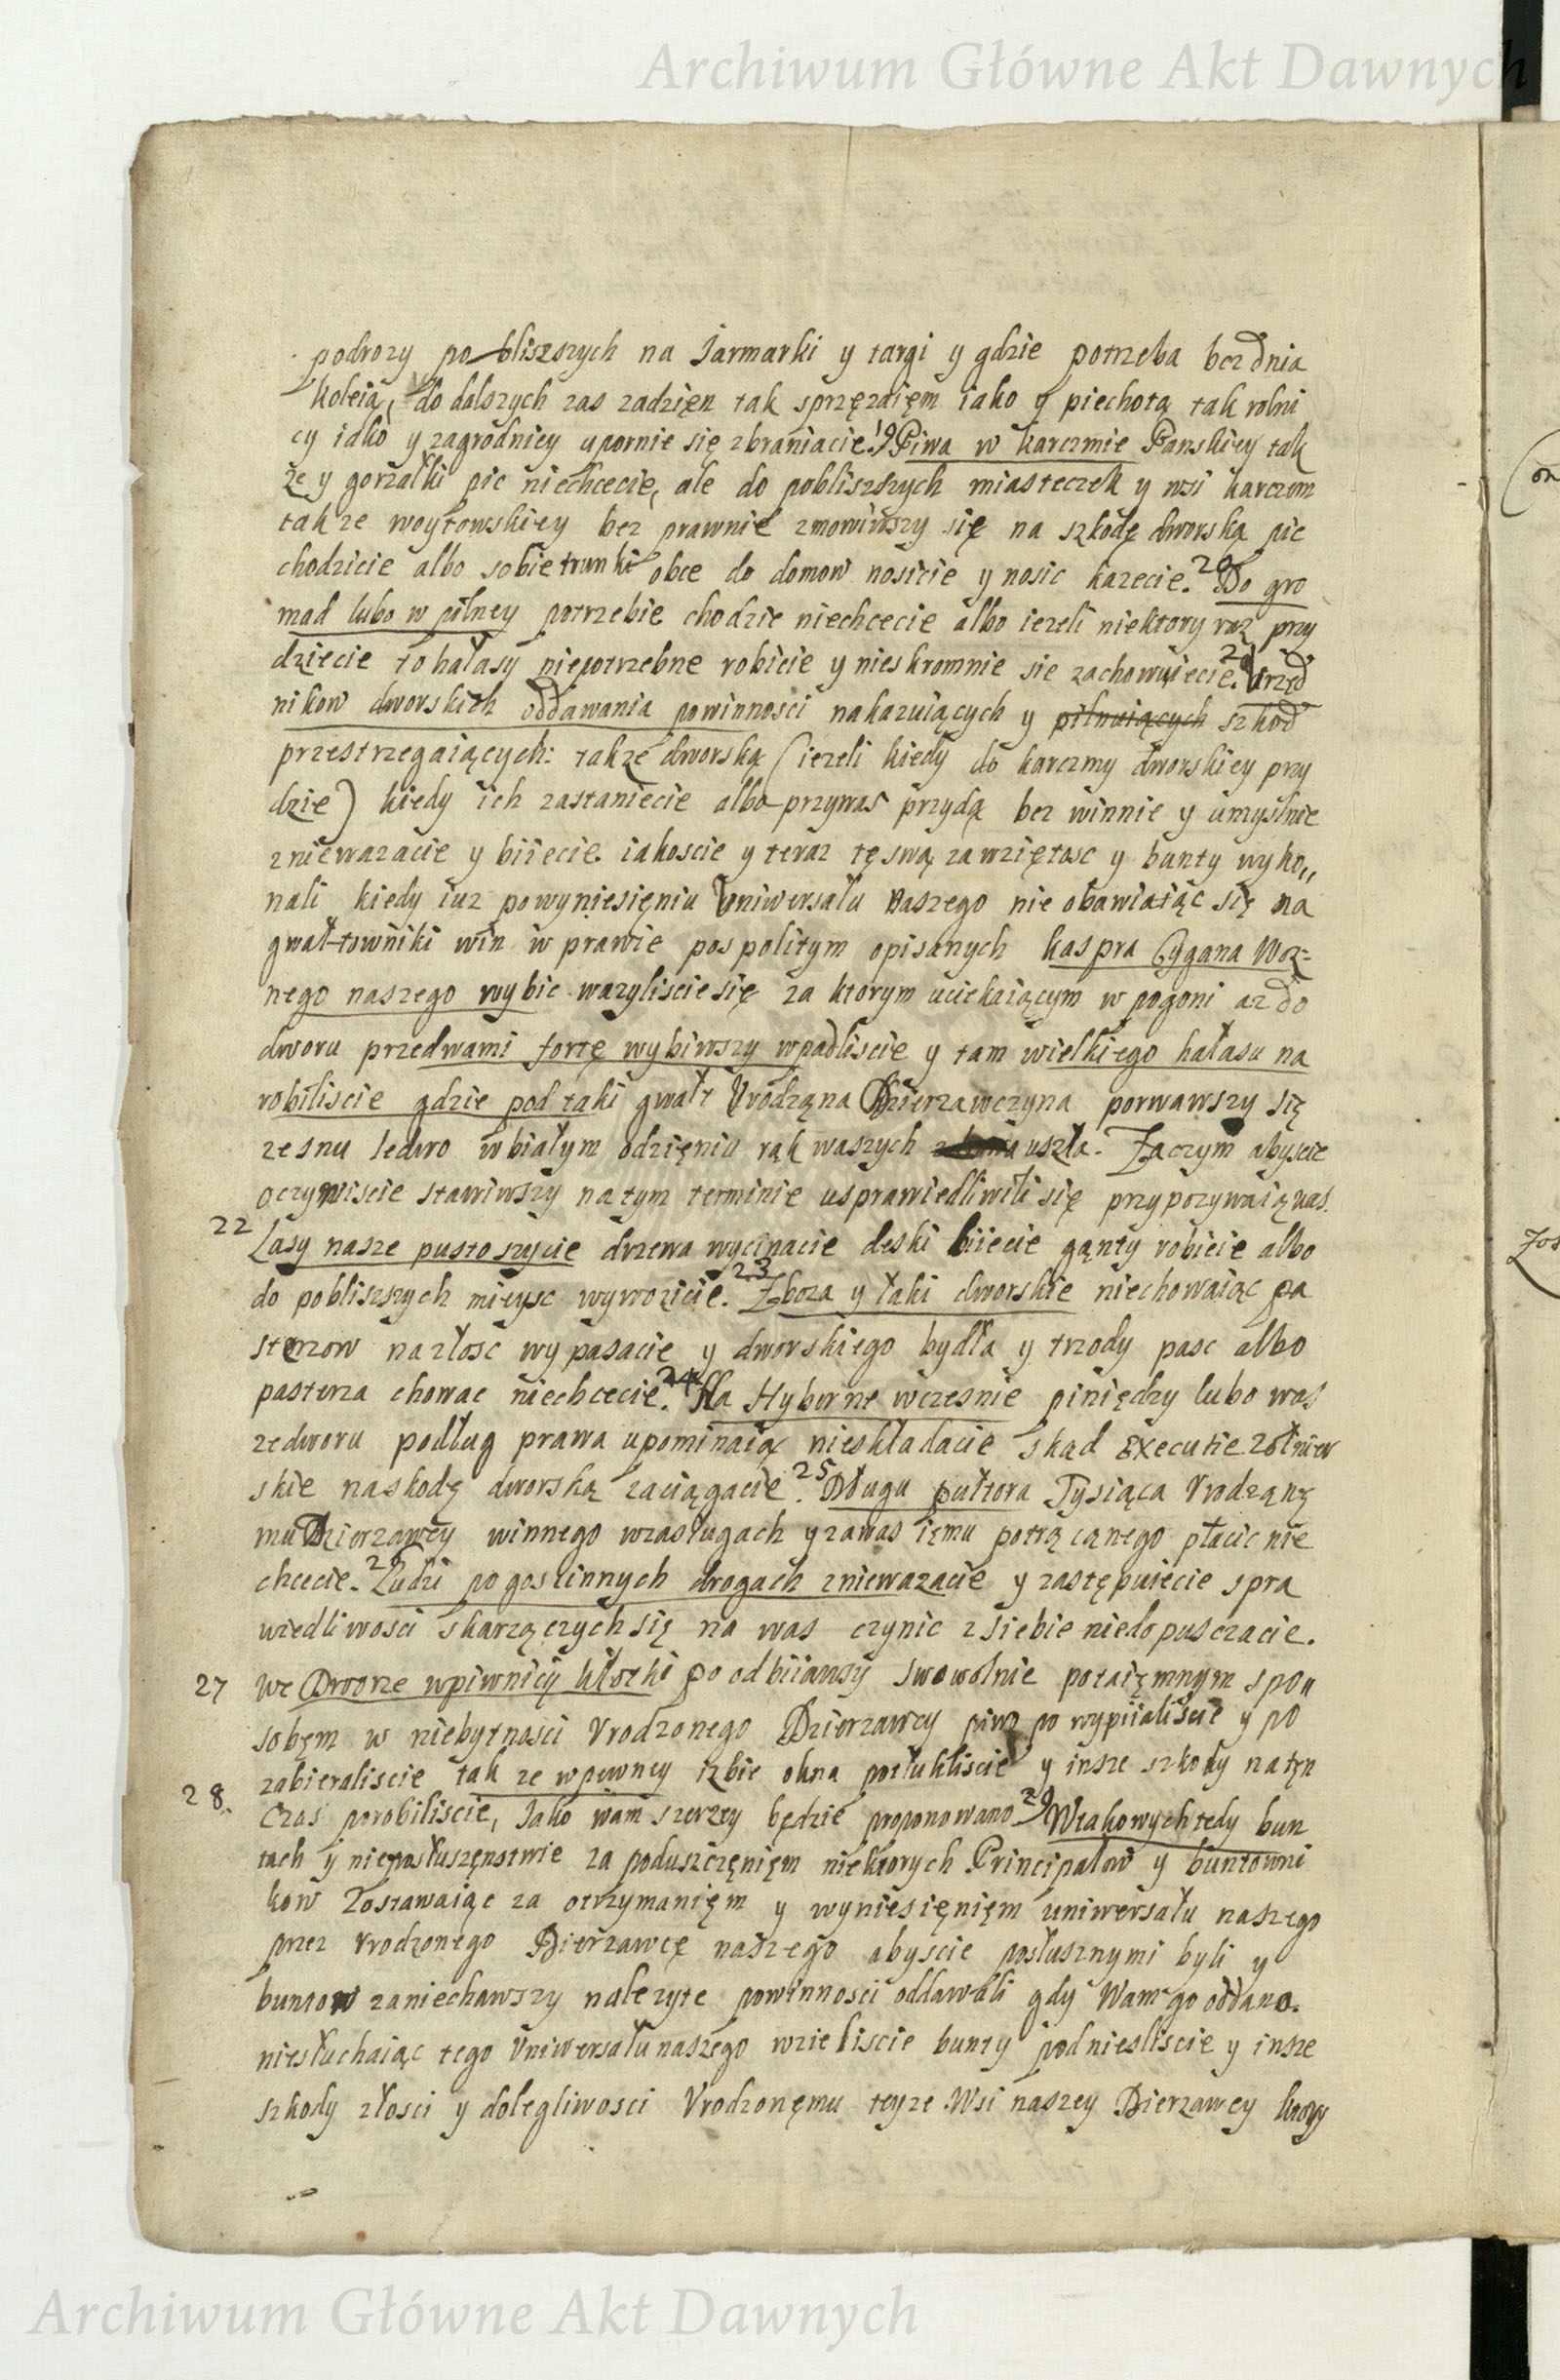 Archiwum Główne Akt Dawnych
podrozy po bliszszych na Jarmarki y targi y gdzie potrzeba bez dnia
koleią, do dalszych zas zadzięn tak sprzęzaięm iako y piechotą tak rolni
cy iako y zagrodnicy upornie się zbraniacie. 19 Piwa w karczmie Panskiey tak
ze y gorzałki pic niechcecie, ale do pobliszszych miasteczek y wsi karczem
takze woytowskiey bez prawnie zmowiwszy się na szkodę dworską pic
chodzicie albo sobie trunki obce do domow nosicie y nosic kazecie. 20 Do gro
mad lubo w pilney potrzebie chodzic niechcecie albo iezeli niektory raz przy
dziecie to hałasy niepotrzebne robicie y nieskromnie sie zachowuiecie. 21 Urzęd
nikow dworskich oddawania powinnosci nakazuiących y pilnuiących szkod
przestrzegaiących: takze dworską (iezeli kiedy do karczmy dworskiey przy
dzie) kiedy ich zastaniecie albo przywas przydą bez winnie y umyslnie
zniewazacie y biiecie. iakoscie y teraz tę swą zawziętosc y bunty wyko„
nali kiedy iuz powyniesięniu Uniwersału Naszego nie obawiaiąc się na
gwałtowniki win w prawie pospolitym opisanych kaspra Cygana Woz=
nego naszego wybic wazyliscie się za ktorym uciekaiącym w pogoni az do
dworu przedwami fortę wybiwszy wpadliscie y tam wielkiego hałasu na
robiliscie gdzie pod taki gwałt Urodząna Dzierzawczyna porwawszy się
ze snu ledwo w białym odzięniu rąk waszych uszła. Zaczym abyscie
oczywiscie stawiwszy na tym terminie usprawiedliwili się przypozywaią was.
22 Lasy nasze pustoszycie drzewa wycinacie deski biiecie gąnty robicie albo
do pobliszszych mieysc wywozicie. 23 Zboza y łaki dworskie niechowaiąc pa
sterzow nazłosc wypasacie y dworskiego bydła y trzody pasc albo
pasterza chowac niechcecie. 24 Na Hyberne wczesnie piniędzy lubo was
zedworu podług prawa upominaią nieskładacie skąd Executie zołnier
skie naskodę dworską zaciągacie. 25 Długu pułtora Tysiąca Urodząnę
mu Dzierzawcy winnego wzasługach y zawas ięmu potrącanego płacic nie
chcecie. 26 Ludzi po goscinnych drogach zniewazacie y zastępuiecie spra
wiedliwosci skarzączych się na was czynic zsiebie niedopusczacie.
27 We Dworze wpiwnicy kłotki poodbiiawsy swowolnie potaięmnym spo„
sobęm w niebytnosci Urodzonego Dzierzawcy piwa powypiialiscie y po
zabieraliscie tak ze wpewney izbie okna potłukliscie y insze szkody natęn
28. Czas porobiliscie, Jako wam szerzey będzie proponowano. 29 Wtakowych tedy bun
tach y nieposłuszęnstwie za poduszczęnięm niektorych Principałow y buntowni
kow Zostawaiąc za otrzymanięm y wyniesięnięm uniwersału naszego
przez Urodzonego Dierzawcę naszego abyscie posłusznymi byli y
buntow zaniechawszy nalezyte powinnosci oddawali gdy Wam go oddano.
niesłuchaiąc tego Uniwersału naszego wzieliscie bunty podniesliscie y insze
szkody złosci y dolegliwosci Urodzonęmu teyze Wsi naszey Dierzawcy ktory
Archiwum Główne Akt Dawnych